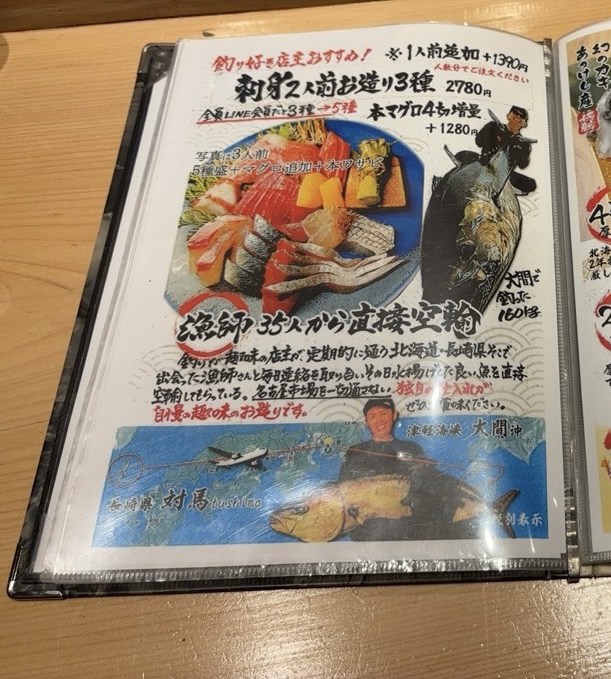 釣り好き店主おすすめ!
※1人前追加 +1390円
人数分でご注文ください
刺身2人前お造り3種 2780円
全員LINE会員だと3種→5種
本マグロ4切増量
+1280円
写真は3人前
5種盛+マグロ追加+本ワサビ
大間で
釣った
160kg
漁師35人から直接空輸
釣りが趣味の店主が、定期的に通う北海道・長崎県そこで
出会った漁師さんと毎日連絡を取り合いその日水揚げした良い魚を直接
空輸してもらっている。名古屋市場を一切通さない独自の仕入れが
自慢の趣味のお造りです。
ください。
津軽海峡 大間沖
長崎県 対馬 tsushima
税別表示
幻のカキ
あっけし産
北海
2年
厳し